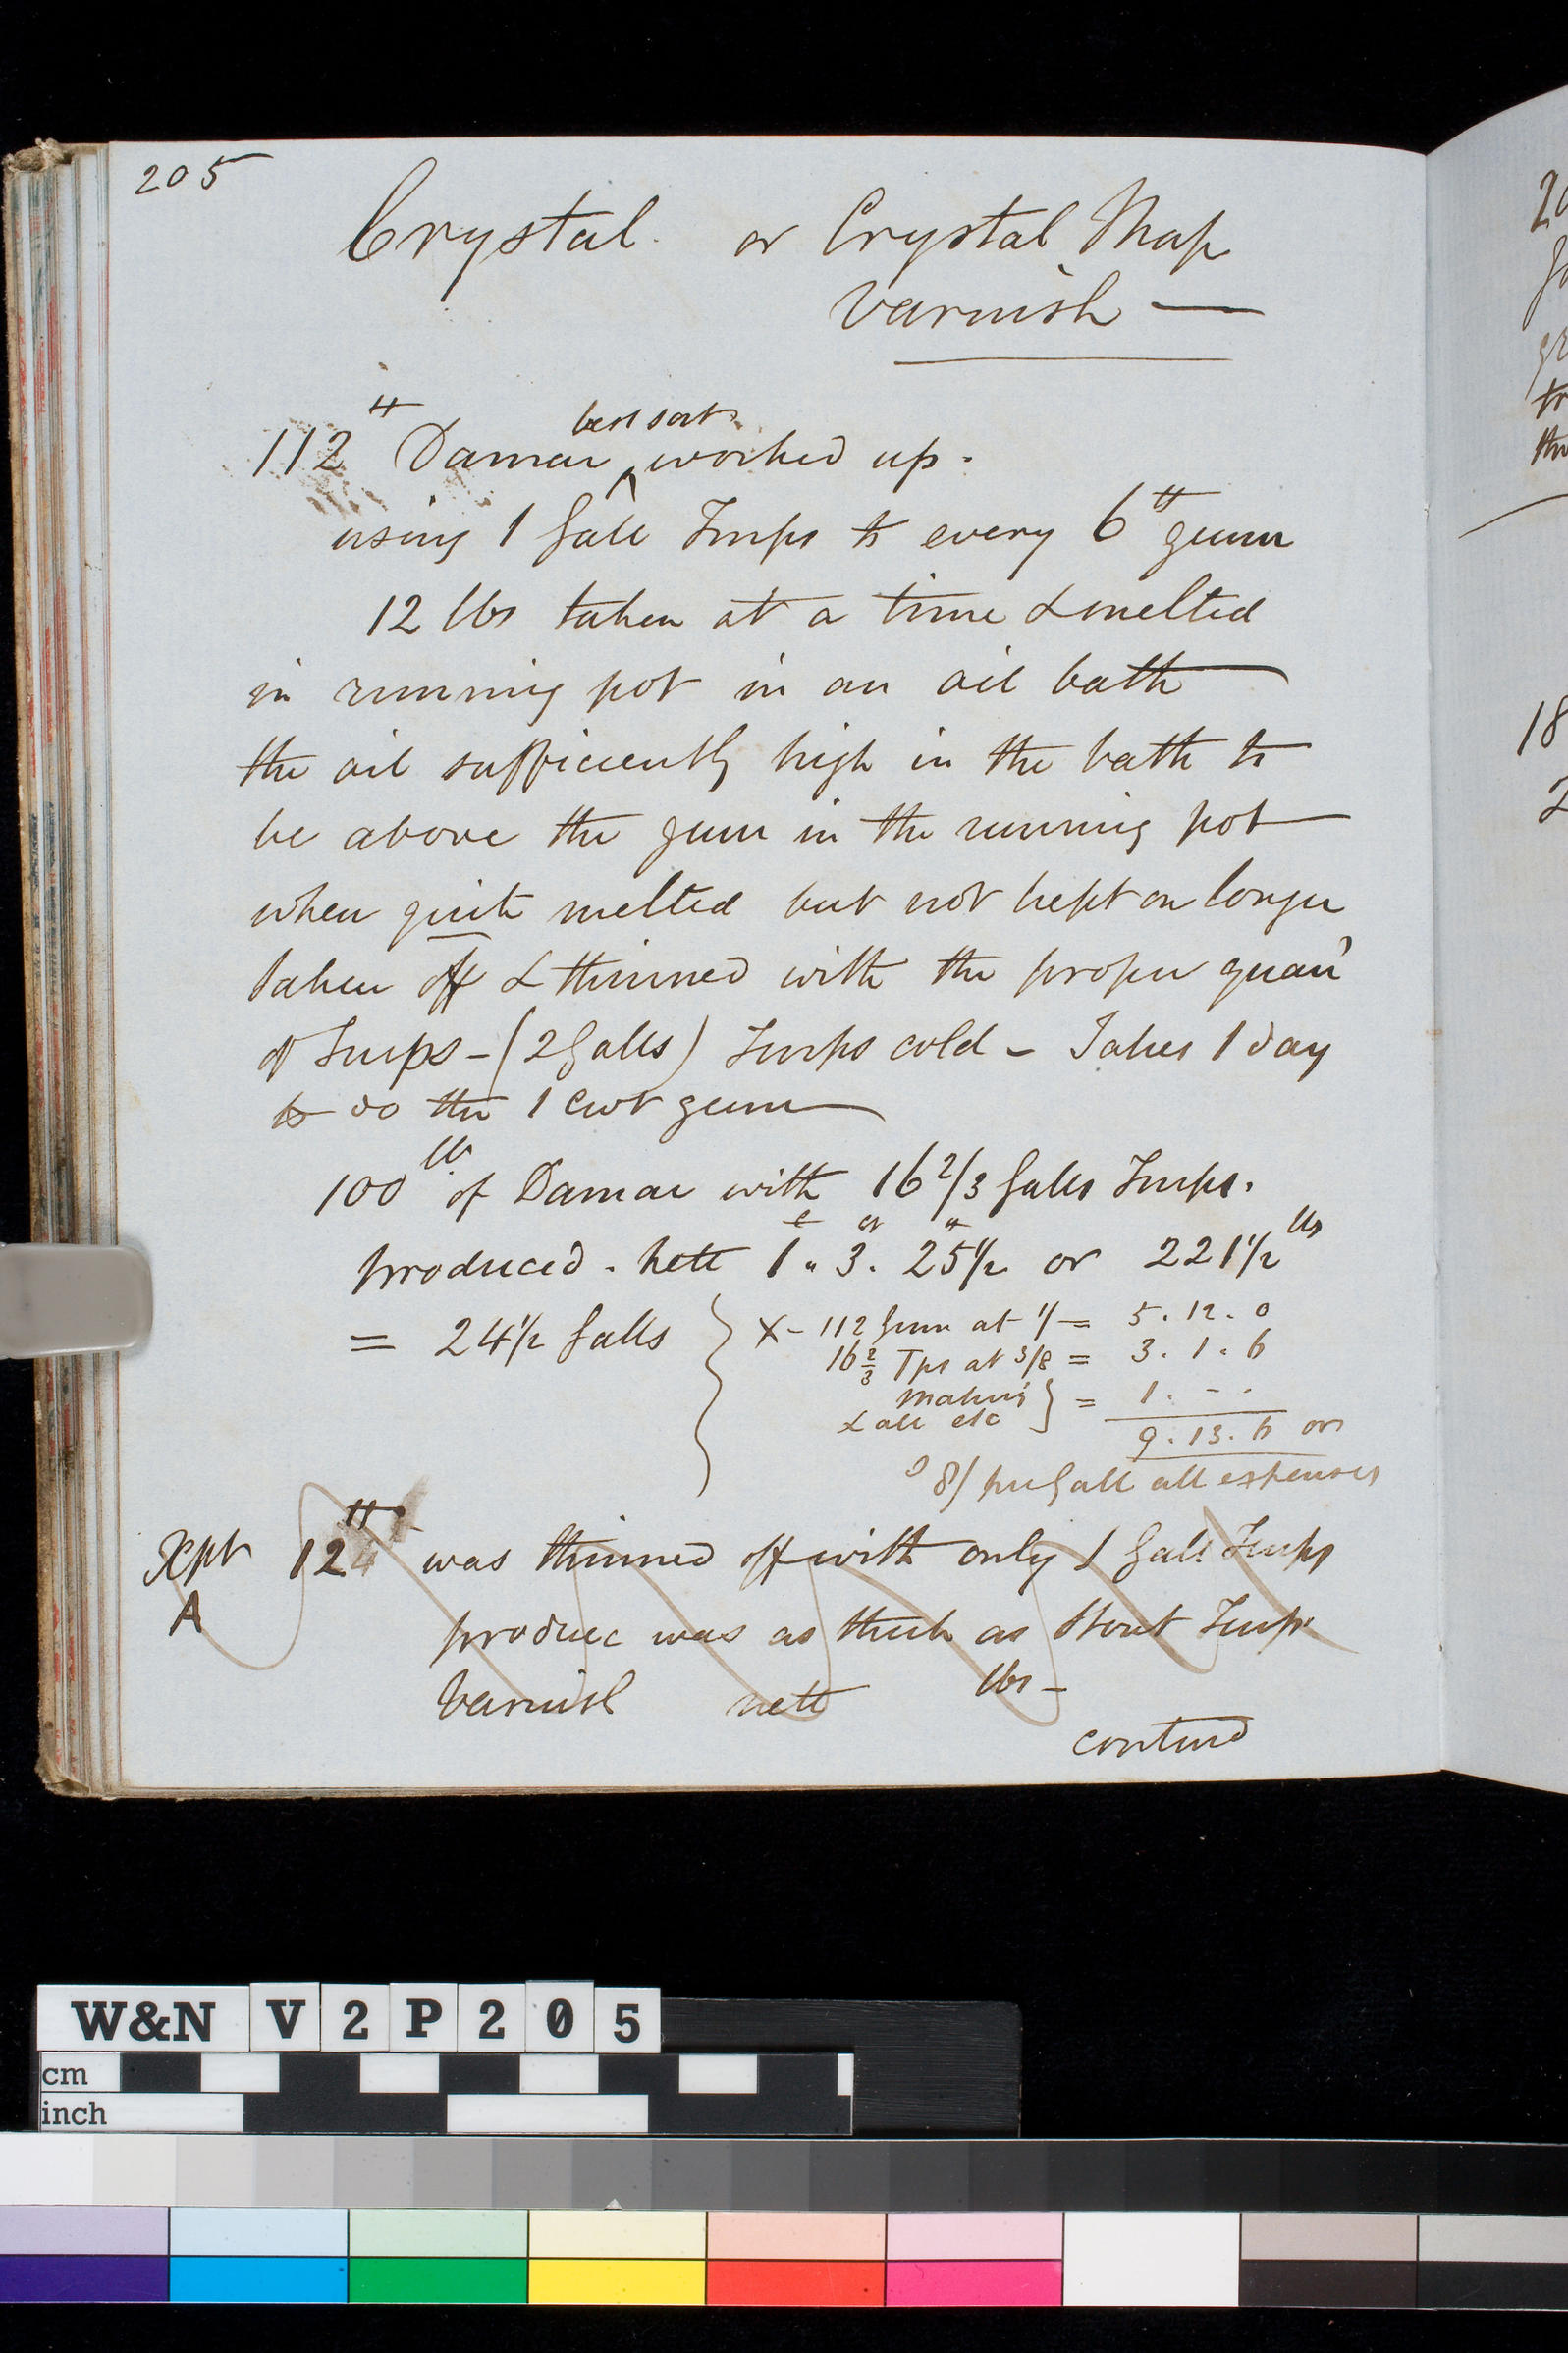 205
Crystal or Crystal Map
Varnish —
112 lb Damar best sort worked up.
using 1 Gall Turps to every 6 lb gum
12 lbs taken at a time & melted
in running pot in an oil bath
the oil sufficiently high in the bath to
be above the gum in the running pot
when quite melted but not kept on longer
taken off & thinned with the proper quan
of Turps - (2 Galls) Turps cold - Takes 1 day
to do the 1 Cwt gum
100 lb of Damar with 16 2/3 Galls Turps.
produced. nett 1 . 3 . 25 1/2 or 221 1/2 lbs
= 24 1/2 Galls
X - 112 Gum at 1/ = 5 . 12 . 0
16 2/3 Tps at 3/8 = 3 . 1 . 6
Making & all etc } = 1 . - .
9 . 13 . 6 or
8/ per Gall all expenses
Xpt A
12 lb was thinned off with only 1 Gall Turps
produce was as thick as Stout Turps
Varnish nett lbs -
contind
W&N V2P205
cm
inch